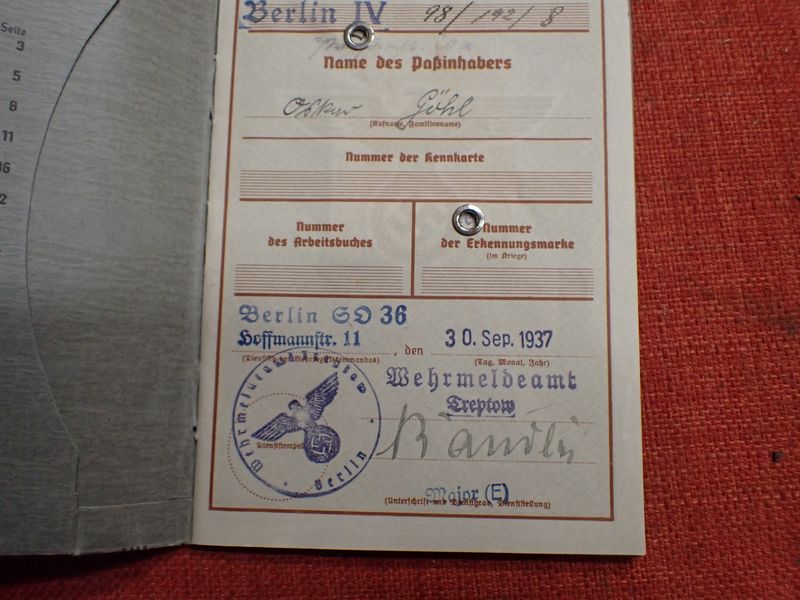 Seite
3
5
8
11
16
2
Berlin IV 98/192/8
Name des Paßinhabers
Oskar Göhl
(Rufname, Familienname)
Nummer der Kennkarte
Nummer
des Arbeitsbuches
Nummer
der Erkennungsmarke
(im Kriege)
Berlin SO 36
Hoffmannstr. 11, den 30. Sep. 1937
(Dienstsitz des Wehrbezirkskommandos)
(Tag, Monat, Jahr)
Wehrmeldeamt
Treptow
Wehrmeldeamt Treptow
Berlin
Dienststempel
Major (E)
(Unterschrift und Dienstgrad, Dienststellung)